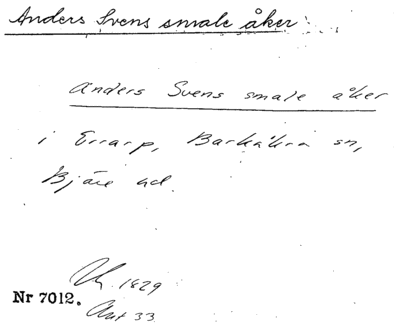 Anders Svens smale åker
Anders Svens smale åker
i Errarp, Barkåkra sn,
Bjäre hd.
1829
Nr 7012.
Akt 33